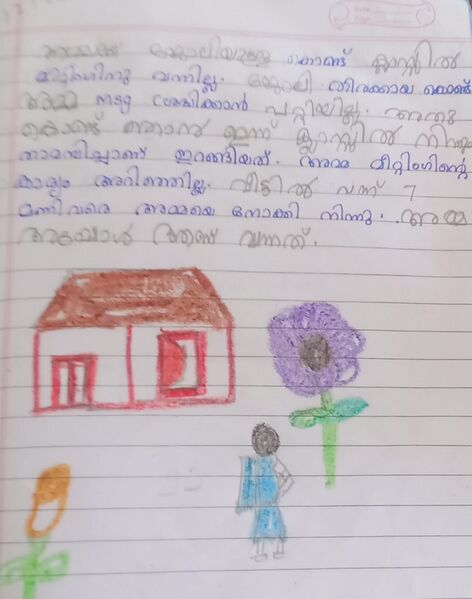 അമ്മക്ക് ജോലിയുള്ളത് കൊണ്ട് ക്ലാസ്സിൽ
മീറ്റിംഗിനു വന്നില്ല. ജോലി തിരക്കായ കൊണ്ട്
അമ്മ msg ശ്രദ്ധിക്കാൻ പറ്റിയില്ല. അതു
കൊണ്ട് ഞാൻ ഇന്ന് ക്ലാസ്സിൽ നിന്നും
താമസിച്ചാണ് ഇറങ്ങിയത്. അമ്മ മീറ്റിംഗിന്റെ
കാര്യം അറിഞ്ഞില്ല. വീട്ടിൽ വന്ന് 7
മണിവരെ അമ്മയെ നോക്കി നിന്നു. അമ്മ
അപ്പോൾ ആണ് വന്നത്.